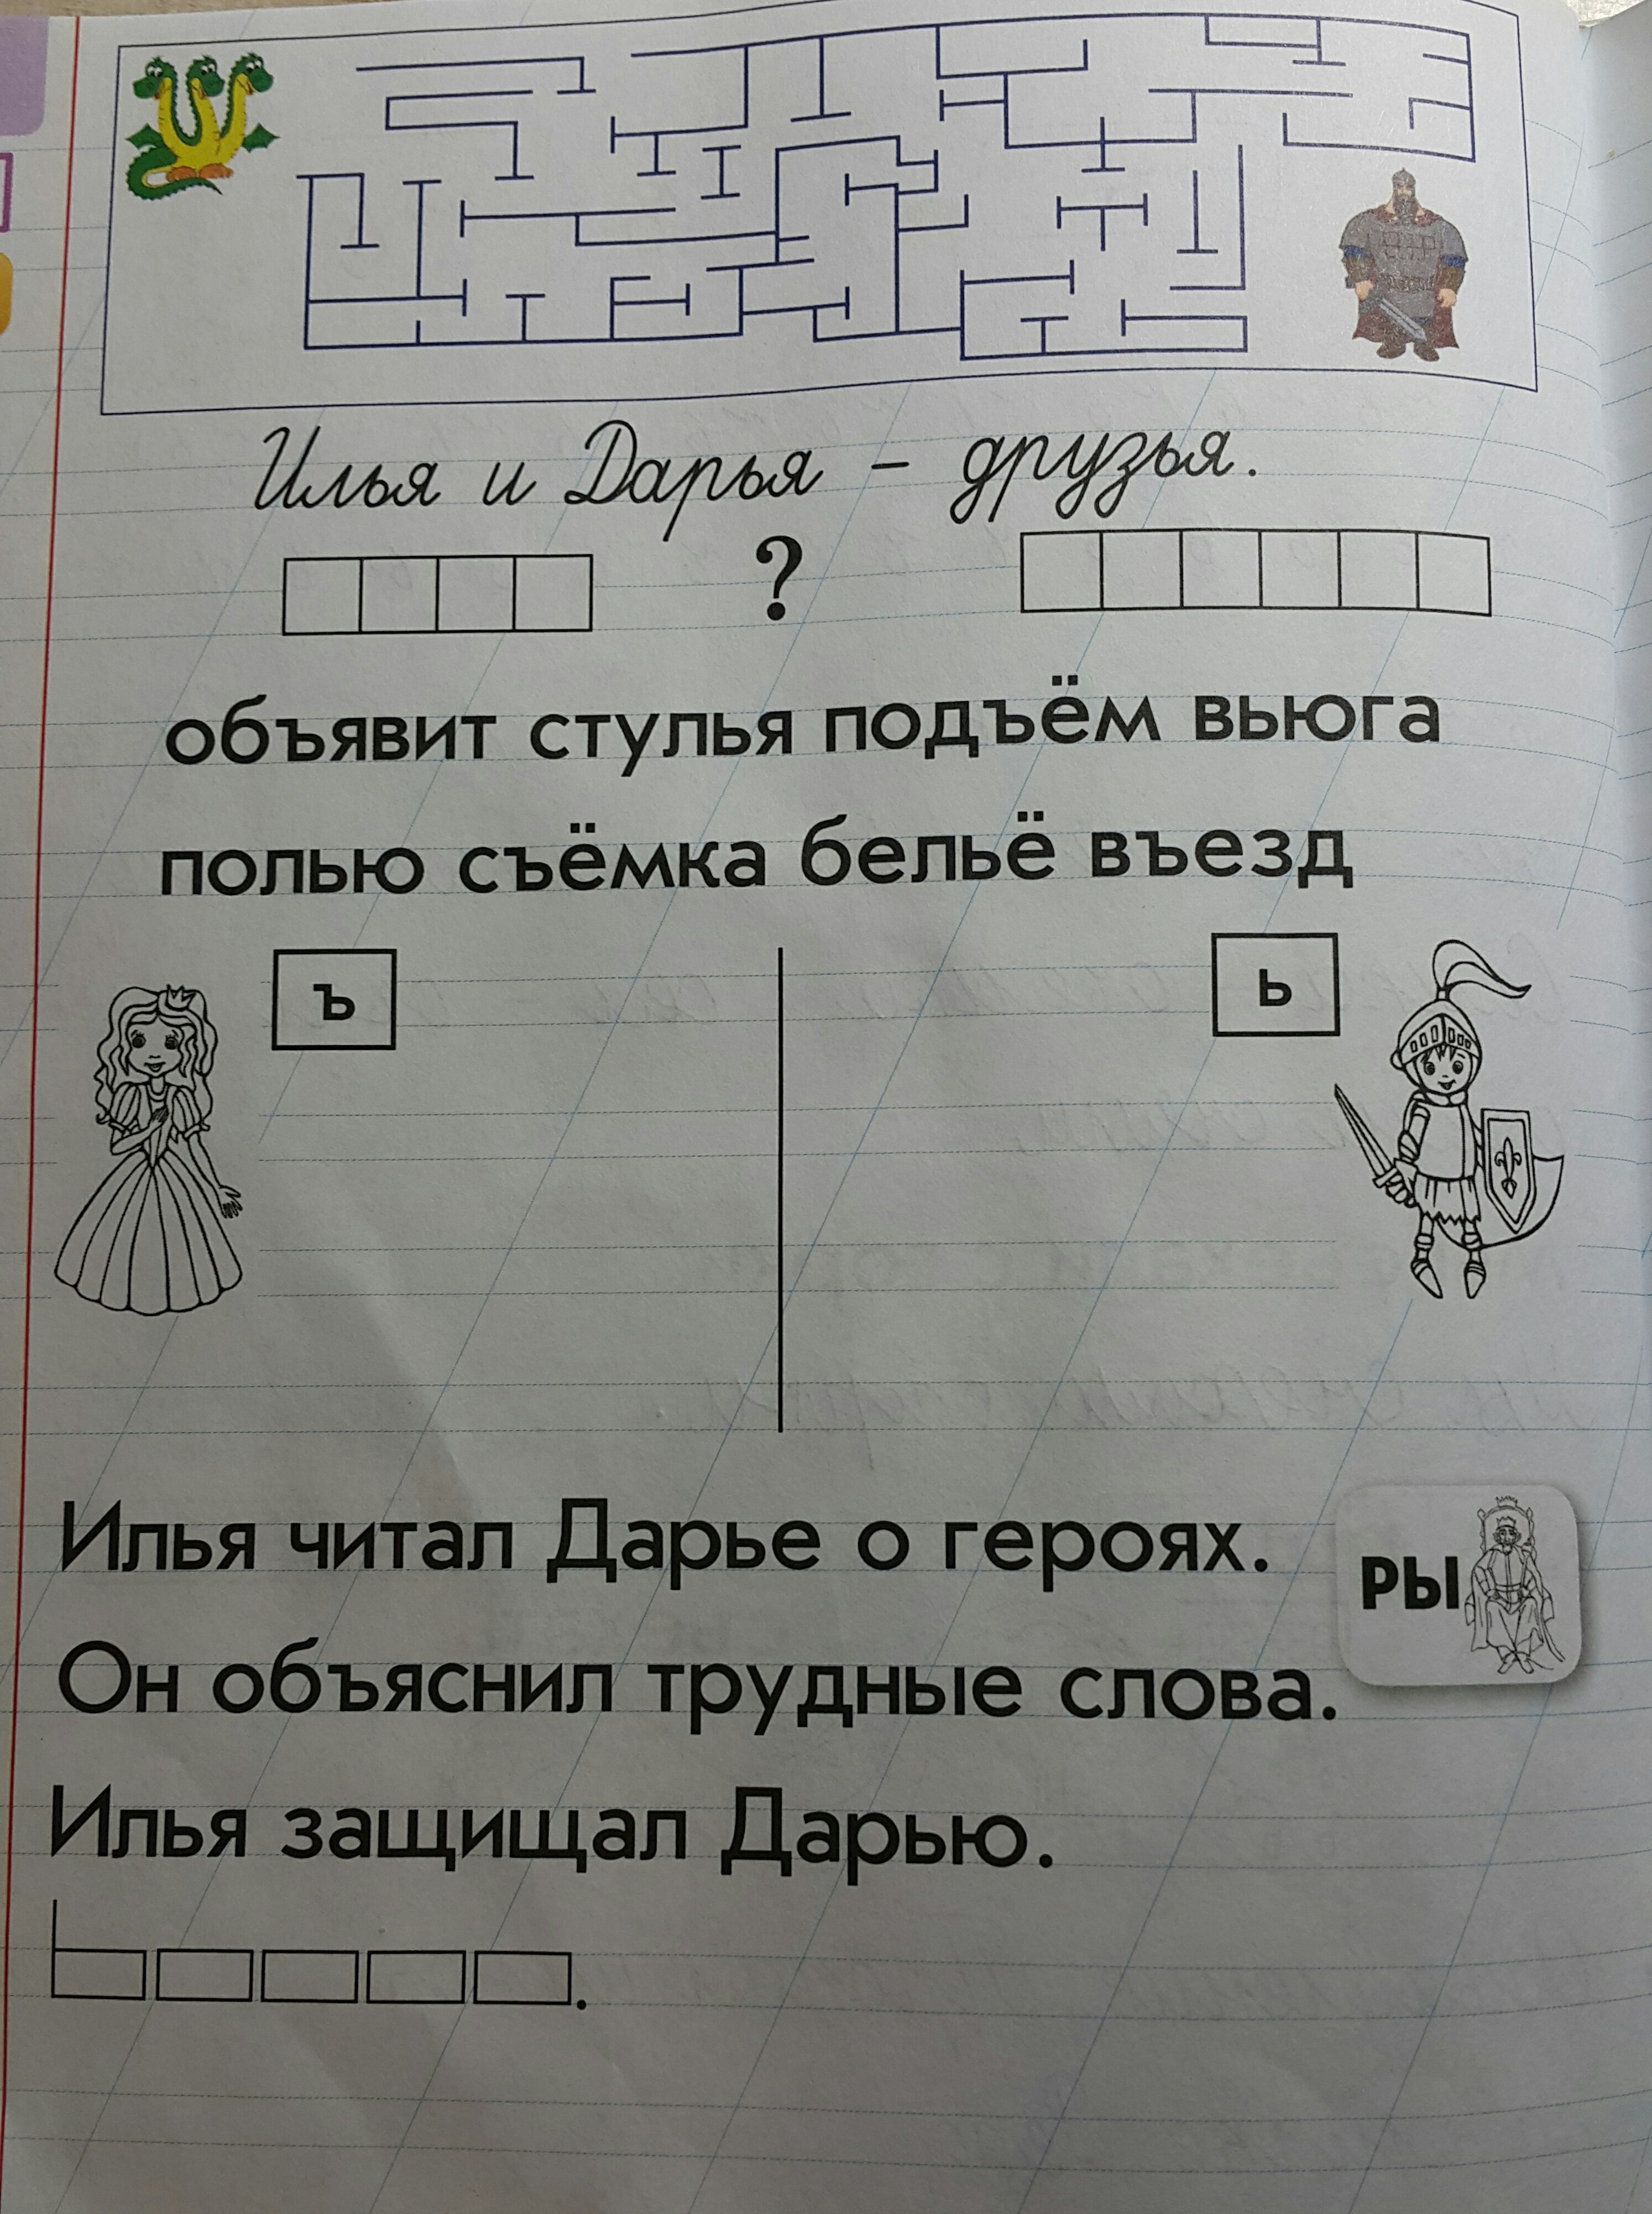 Илья и Дарья – друзья.
?
объявит стулья подъём вьюга
полью съёмка бельё въезд
ъ
ь
Илья читал Дарье о героях.
РЫ
Он объяснил трудные слова.
Илья защищал Дарью.